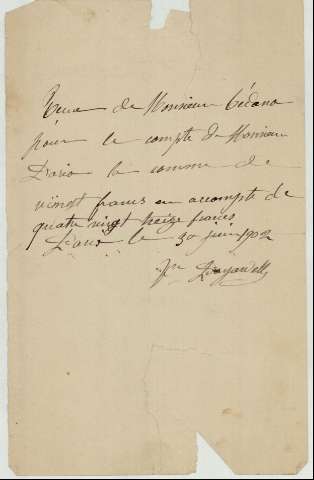 Recu de Monsieur Cédano
pour le compte de Monsieur
Dario la comme de
vingt francs en accompte de
quatre vingt treize francs
Paris le 30 juin 1902